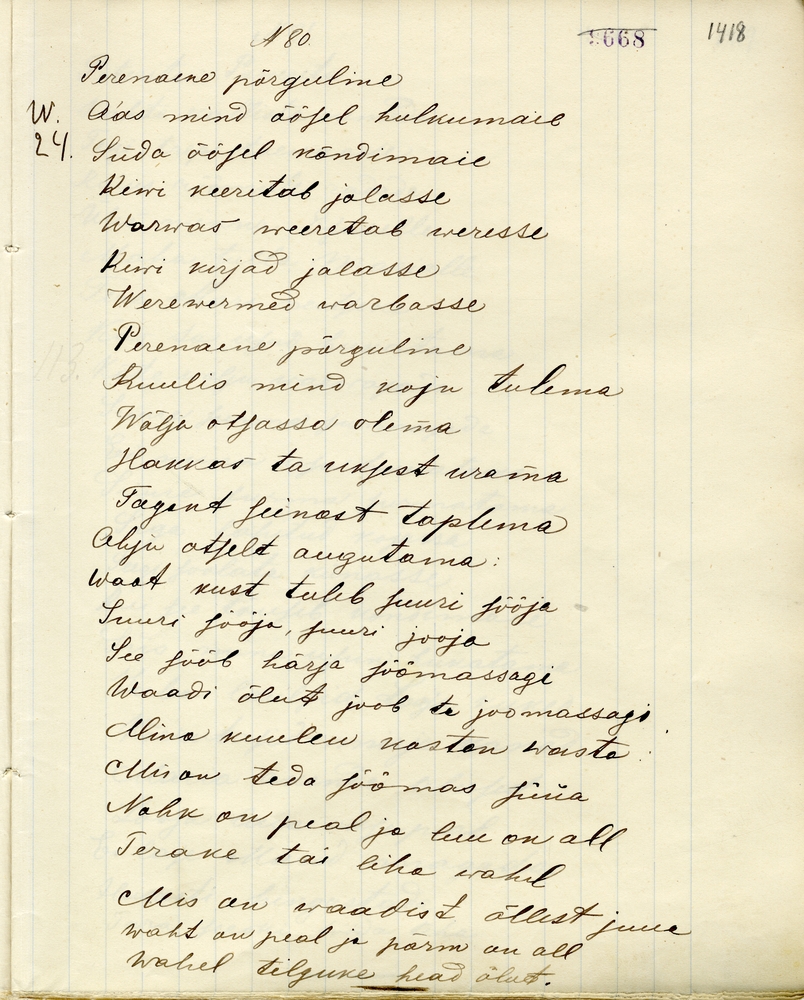 N 80.
1418
Perenaene põrguline
W. Aas mind öösel hulkumaie
24. Süda öösel kõndimaie
Kiwi keeritab jalasse
Warwas weeretab weresse
Kiwi kirjad jalasse
Werewermed warbasse
Perenaene põrguline
Kuulis mind koju tulema
Wälja otsassa olema
Hakkas ta uksest urama
Tagant seinast taplema
Ahju otselt augutama:
Waat kust tuleb suuri sööja
Suuri sööja, suuri jooja
See sööb härja söömassagi
Waadi õlut joob ta joomassagi.
Mina kuulen kostan wasta:
Mis on teda söömas süüa
Nahk on peal ja luu on all
Terake täi liha wahel
Mis on waadist õllest juua
waht on peal ja pärm on all
Wahel tilguke head õlut.